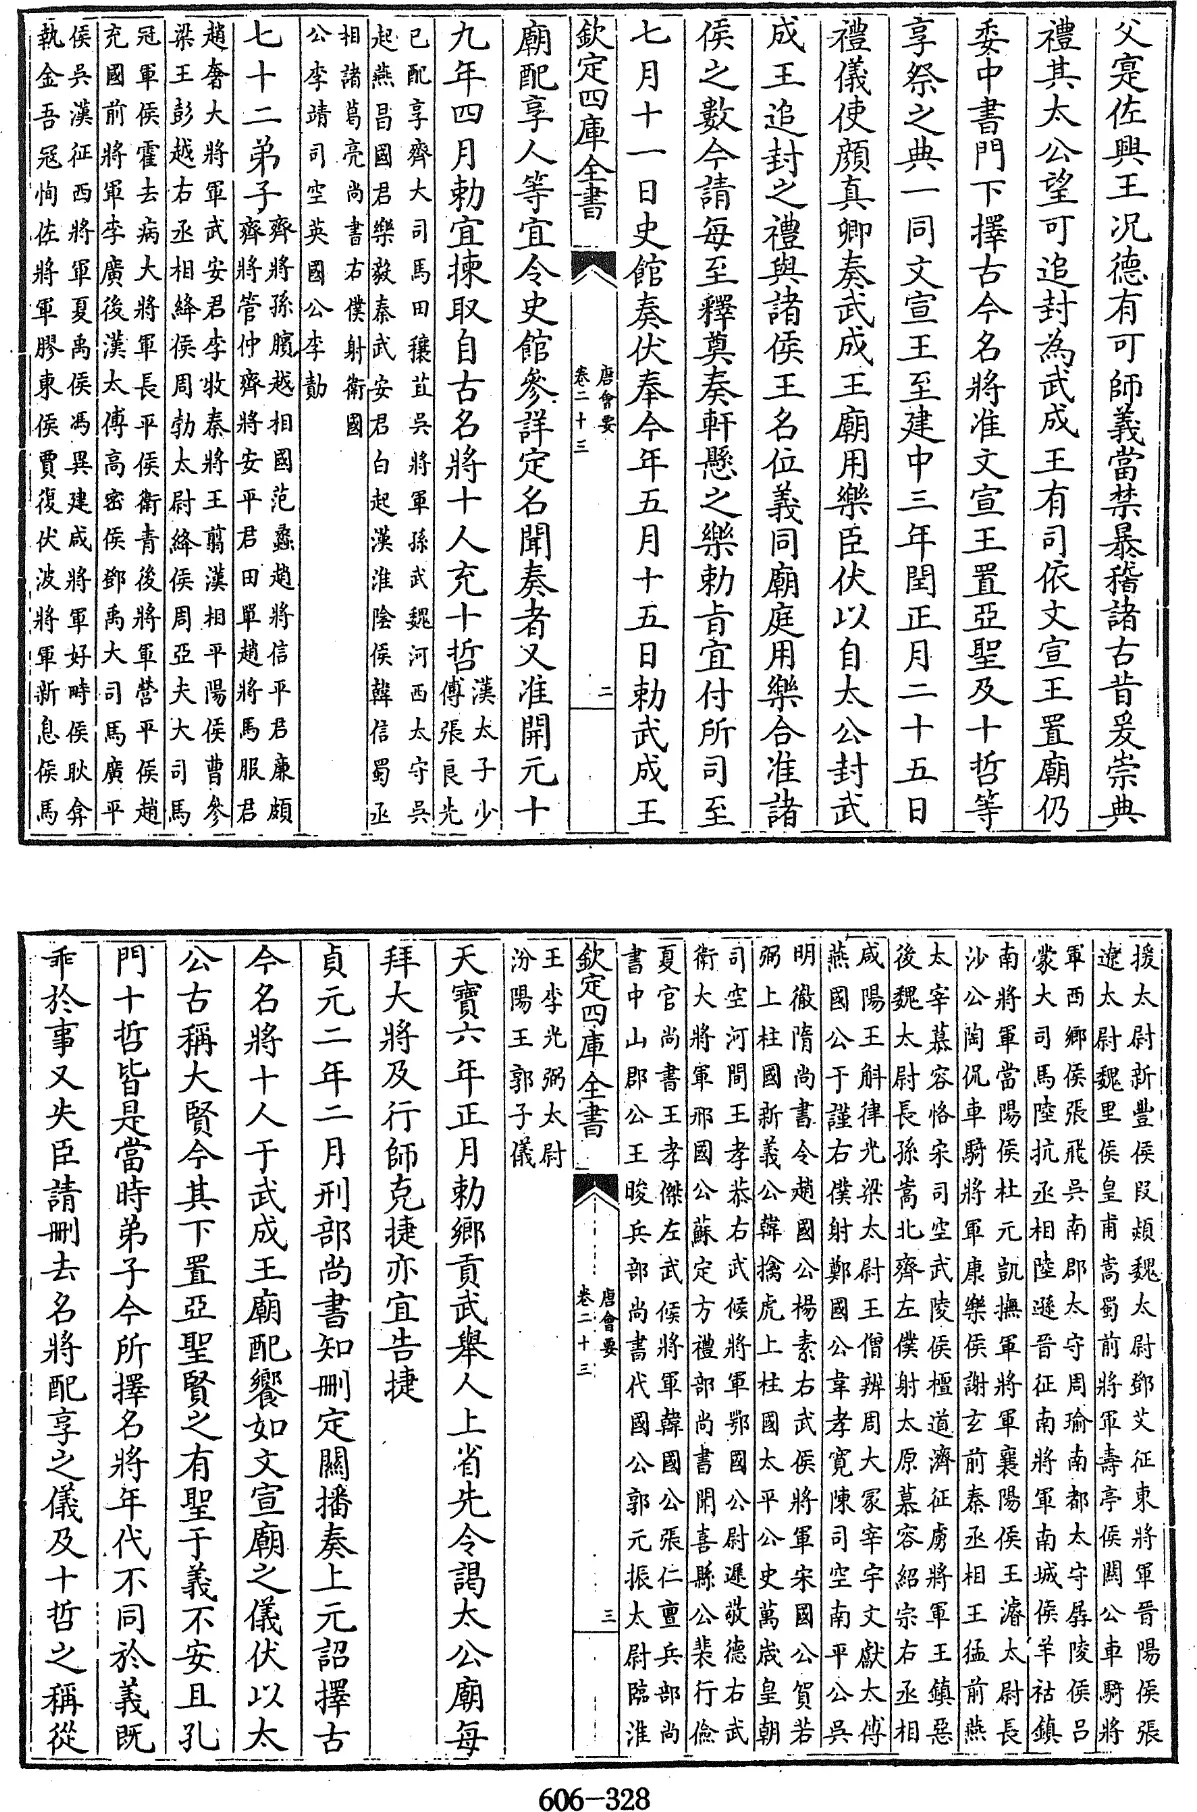 父寔佐興王况德有可師義當禁暴稽諸古昔爰崇典
禮其太公望可追封為武成王有司依文宣王置廟仍
委中書門下擇古今名將准文宣王置亞聖及十哲等
享祭之典一同文宣王至建中三年閏正月二十五日
禮儀使顔真卿奏武成王廟用樂臣伏以自太公封武
成王追封之禮與諸侯王名位義同廟庭用樂合准諸
侯之數今請每至釋奠奏軒懸之樂勅旨宜付所司至
七月十一日史館奏伏奉今年五月十五日勅武成王
欽定四庫全書
唐會要
卷二十三
二
廟配享人等宜令史館參詳定名聞奏者又准開元十
九年四月勅宜揀取自古名將十人充十哲漢太子少
傅張良先
已配享齊大司馬田穰苴吳將軍孫武魏河西太守吳
起燕昌國君樂毅秦武安君白起漢淮陰侯韓信蜀丞
相諸葛亮尚書右僕射衛國
公李靖司空英國公李勣
七十二弟子齊將孫臏越相國范蠡趙將信平君廉頗
齊將管仲齊將安平君田單趙將馬服君
趙奢大將軍武安君李牧秦將王翦漢相平陽侯曹參
梁王彭越右丞相絳侯周勃太尉絳侯周亞夫大司馬
冠軍侯霍去病大將軍長平侯衛青後將軍營平侯趙
充國前將軍李廣後漢太傅高密侯鄧禹大司馬廣平
侯吳漢征西將軍夏禹侯馮異建威將軍好畤侯耿弇
執金吾冦恂佐將軍膠東侯賈復伏波將軍新息侯馬
援太尉新豐侯段熲魏太尉鄧艾征東將軍晉陽侯張
遼太尉魏里侯皇甫嵩蜀前將軍壽亭侯闗公車騎將
軍西鄉侯張飛吳南郡太守周瑜南都太守孱陵侯呂
蒙大司馬陸抗丞相陸遜晉征南將軍南城侯羊祜鎮
南將軍當陽侯杜元凱撫軍將軍襄陽侯王濬太尉長
沙公陶侃車騎將軍康樂侯謝玄前秦丞相王猛前燕
太宰慕容恪宋司空武陵侯檀道濟征虜將軍王鎮惡
後魏太尉長孫嵩北齊左僕射太原慕容紹宗右丞相
咸陽王斛律光梁太尉王僧辨周大冢宰宇文獻太傅
燕國公于謹右僕射鄭國公韋孝寛陳司空南平公吳
明徹隋尚書令趙國公楊素右武侯將軍宋國公賀若
弼上柱國新義公韓擒虎上柱國太平公史萬歲皇朝
司空河間王孝恭右武候將軍鄂國公尉遲敬德右武
衛大將軍邢國公蘇定方禮部尚書開喜縣公裴行儉
夏官尚書王孝傑左武候將軍韓國公張仁亶兵部尚
書中山郡公王晙兵部尚書代國公郭元振太尉臨淮
欽定四庫全書
唐會要
卷二十三
三
王李光弼太尉
汾陽王郭子儀
天寶六年正月勅鄉貢武舉人上省先令謁太公廟每
拜大將及行師克捷亦宜告捷
貞元二年二月刑部尚書知刪定闗播奏上元詔擇古
今名將十人于武成王廟配饗如文宣廟之儀伏以太
公古稱大賢今其下置亞聖賢之有聖于義不安且孔
門十哲皆是當時弟子今所擇名將年代不同於義既
乖於事又失臣請刪去名將配享之儀及十哲之稱從
606-328